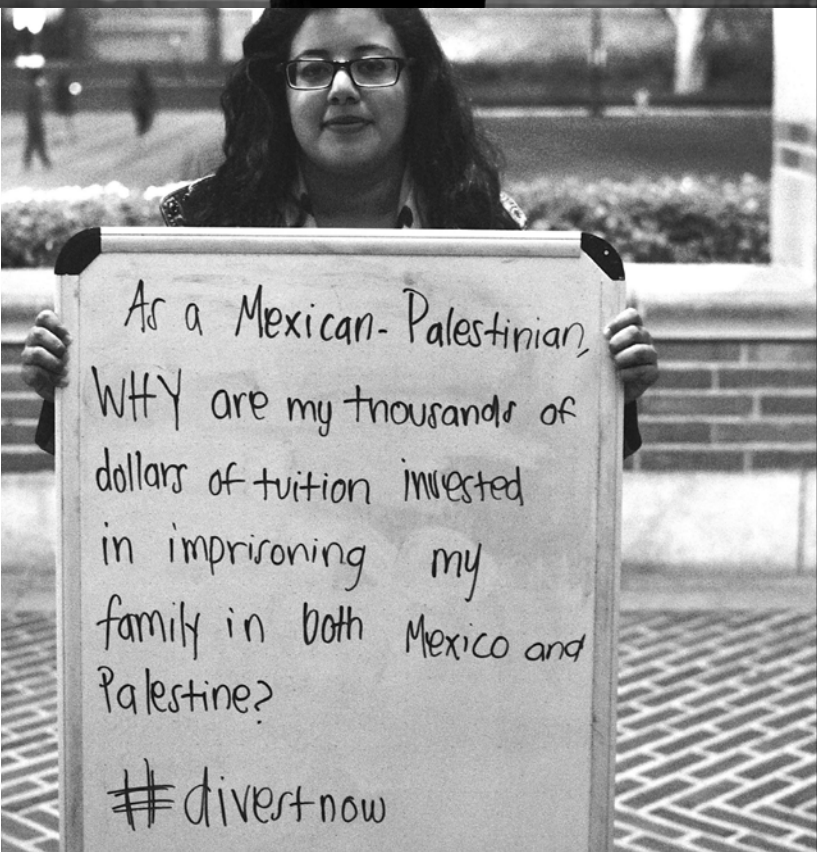 As a Mexican-Palestinian,
WHY are my thousands of
dollars of tuition invested
in imprisoning my
family in both Mexico and
Palestine?
#divestnow